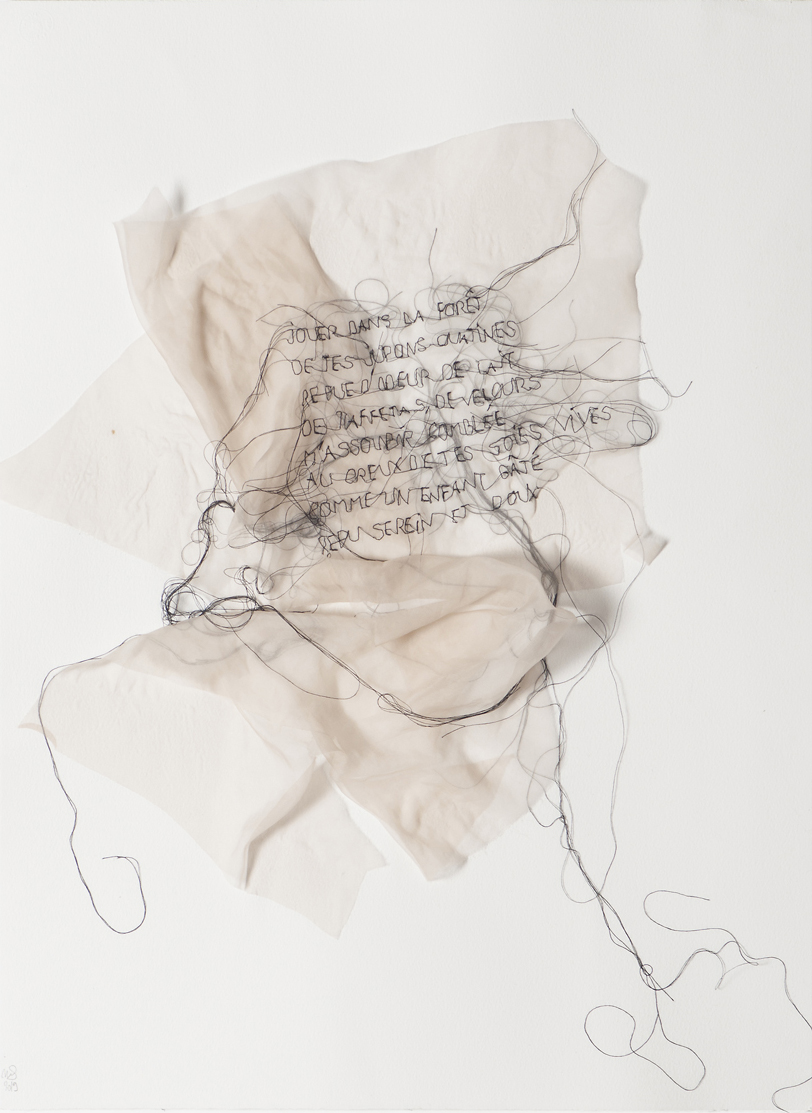 JOUER DANS LA FORÊT
DE TES JUPONS OUATINÉS
REPUE D'ODEUR DE
DE TAFFETAS, DE VELOURS
M'ASSOUVIR COMBLÉE
AU CREUX DE TES JOIES VIVES
COMME UN ENFANT GÂTÉ
REPU SEREIN ET DOUX